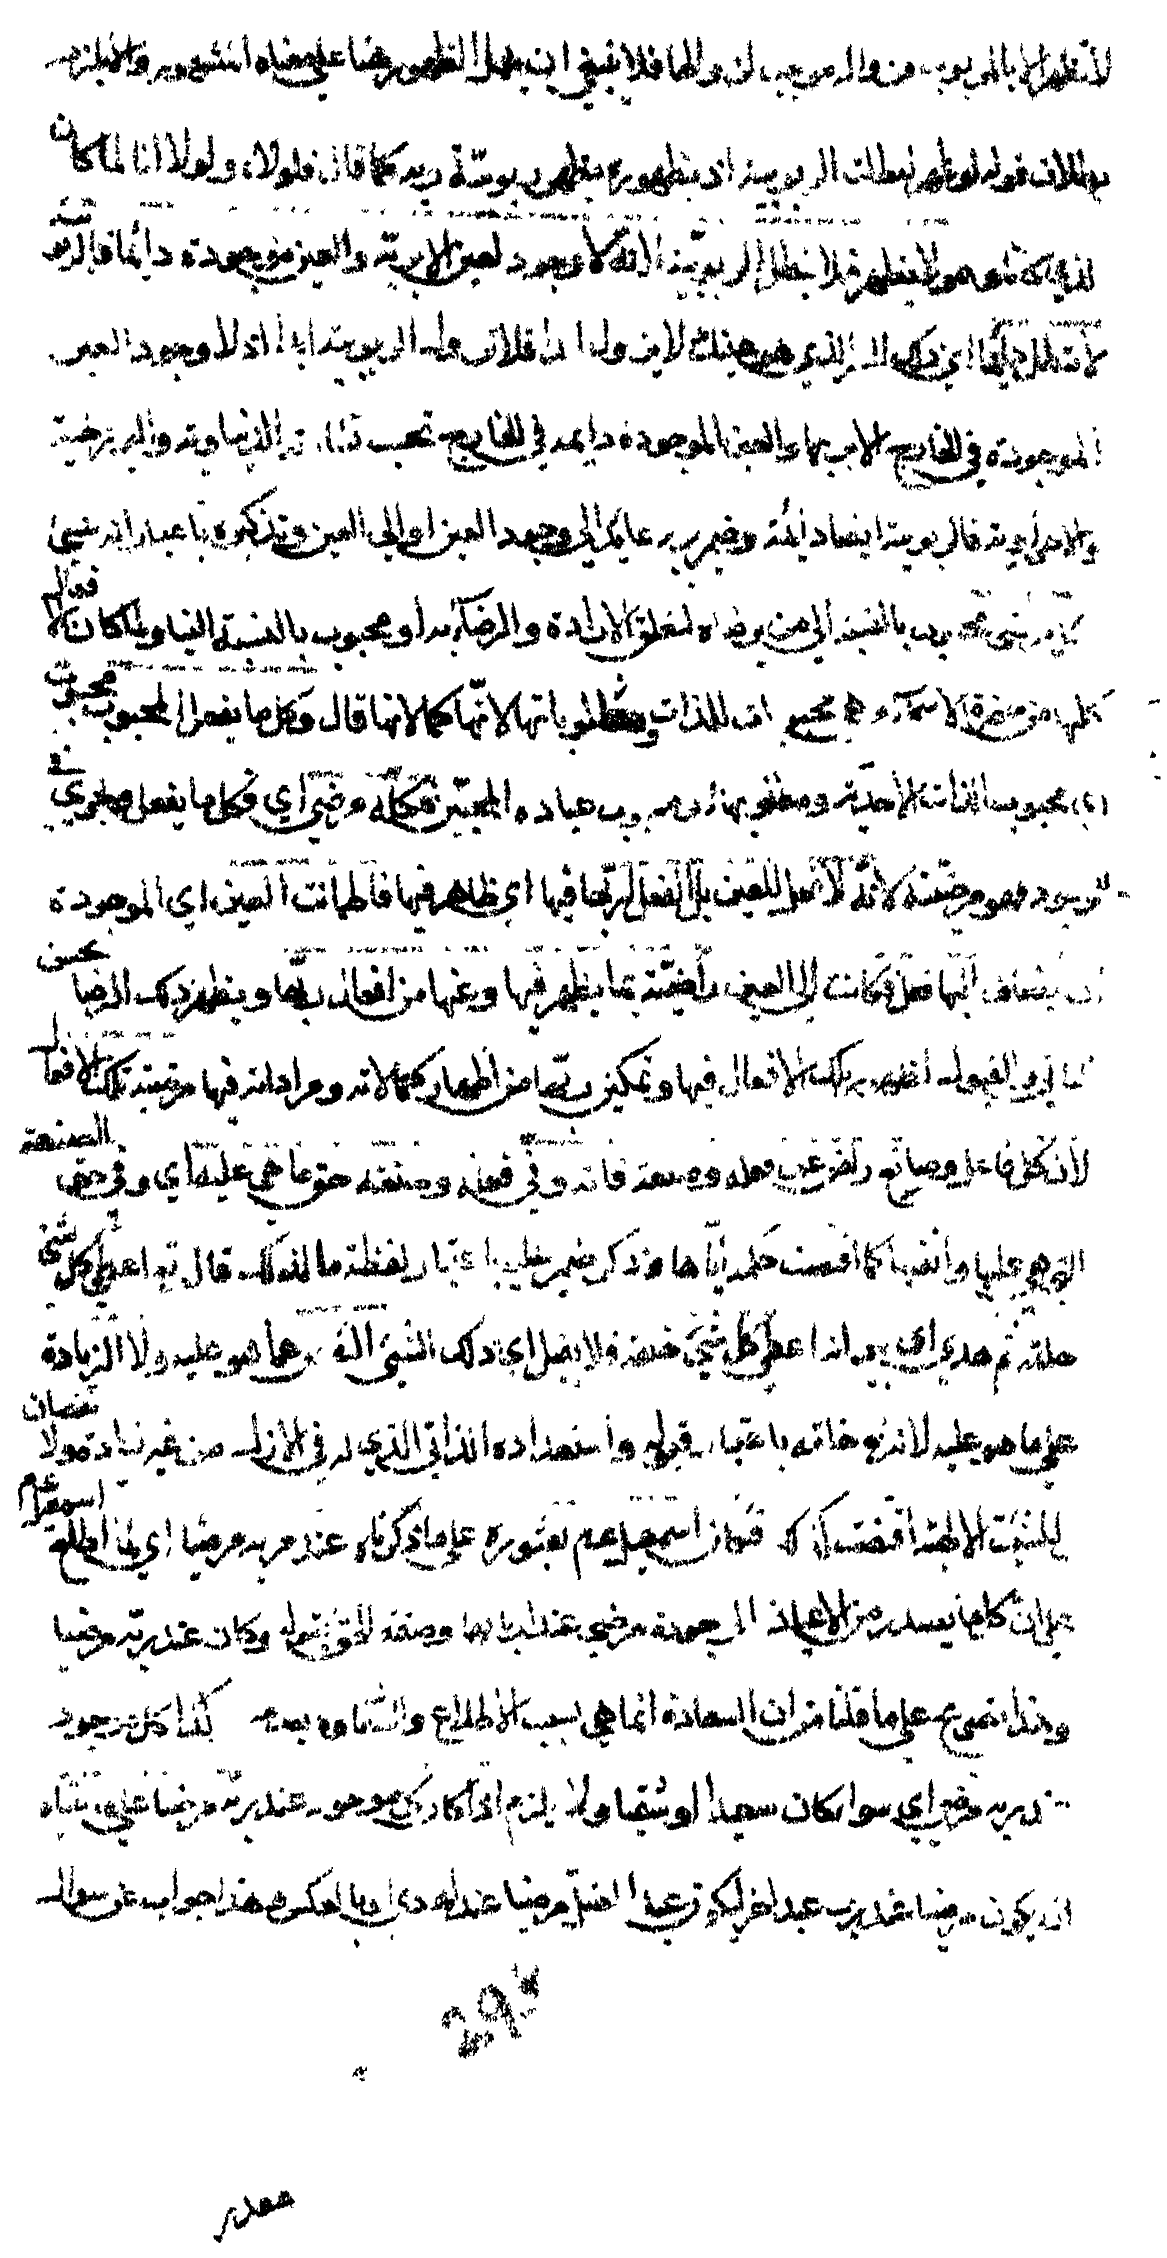 لا تظهر الا بالمربوب من والرموجب لزوالها فلا ينبغي ان يحمل الظهور هنا على معناه المشهور والا يلزم
بطلان قوله لو ظهر لبطلت الربوبية اذ بظهوره يظهر ربوبية ربه كما قال فلولاه ولولانا لما كان
الذي كان وهو لا يظهر فلا تبطل الربوبية لانه لا وجود لعين الا بربه والعين موجودة دائما فالربوبية
لا تبطل دائما اي ذلك السر الذي هو عينك لا يزول ابدا فلا تزول الربوبية ابدا اذ لا وجود العين
الموجودة في الخارج الا بربها والعين الموجودة دائمة في الخارج بحسب نشأته الدنياوية والبرزخية
والاخراوية فالربوبية ايضا دائمة وضمير بربه عائد الى وجود العين او الى العين وتذكيره باعتبار انه شيء
وكل مرضي محبوب بالنسبة الى من يرضاه لتعلق الارادة والرضا به او محبوب بالنسبة الينا ولما كان الافعال
كلها من حضرة الاسماء وهي محبوبات للذات ومطلوباتها لانها كمالاتها قال وكل ما يفعل المحبوب محبوب
اي محبوب الذات الاحدية ومطلوبها ومحبوب عباده المحبين فكله مرضي اي فكل ما يفعل ويجري في
الوجود فهو مرضي لانه لا فعل للعين بل الفعل لربها فيها اي ظاهر فيها فاطمأنت العين اي الموجودة
ان يضاف اليها فعل فكانت اي العين راضية بما يظهر فيها وعنها من افعال ربها ويظهر ذلك الرضا بحسن
التأتي والقبول لظهور تلك الافعال فيها وتمكين ربها من اظهار كمالاته ومراداته فيها مرضية تلك الافعال
لان كل فاعل وصانع راض عن فعله وصنعته فانه وفى فعله وصنعته حق ما هي عليه اي وفى حق الصنعة
التي هي عليها واتقنها كما اقتضت حكمته اياها وذكر ضمير عليه باعتبار لفظة ما لذلك قال تع اعطى كل شيء
خلقه ثم هدى اي بين انه اعطى كل شيء خلقه فلا يقبل اي ذلك الشيء النقص عما هو عليه ولا الزيادة
على ما هو عليه لانه تع خلقه باعتبار قبوله واستعداده الذاتي الذي له في الازل من غير زيادة ولا نقصان
للمشيئة الالهية اقتضت كذلك فكان اسمعيل عم بعثوره على ما ذكرناه عند ربه مرضيا اي لما اطلع اسمعيل عم
على ان كل ما يصدر من الاعيان الموجودة مرضي عند اربابها وصفه الحق بقوله وكان عند ربه مرضيا
وهذا تصريح على ما قلنا من ان السعادة انما هي بسبب الاطلاع والشقاوة بعدمه كذا كل موجود
عند ربه مرضي اي سواء كان سعيدا او شقيا ولا يلزم اذا كان كل موجود عند ربه مرضيا على ما بيناه
ان يكون مرضيا عند رب عبد اخر ليكون عبد المضل مرضيا عند الهادي وبالعكس هذا جواب عن سؤال